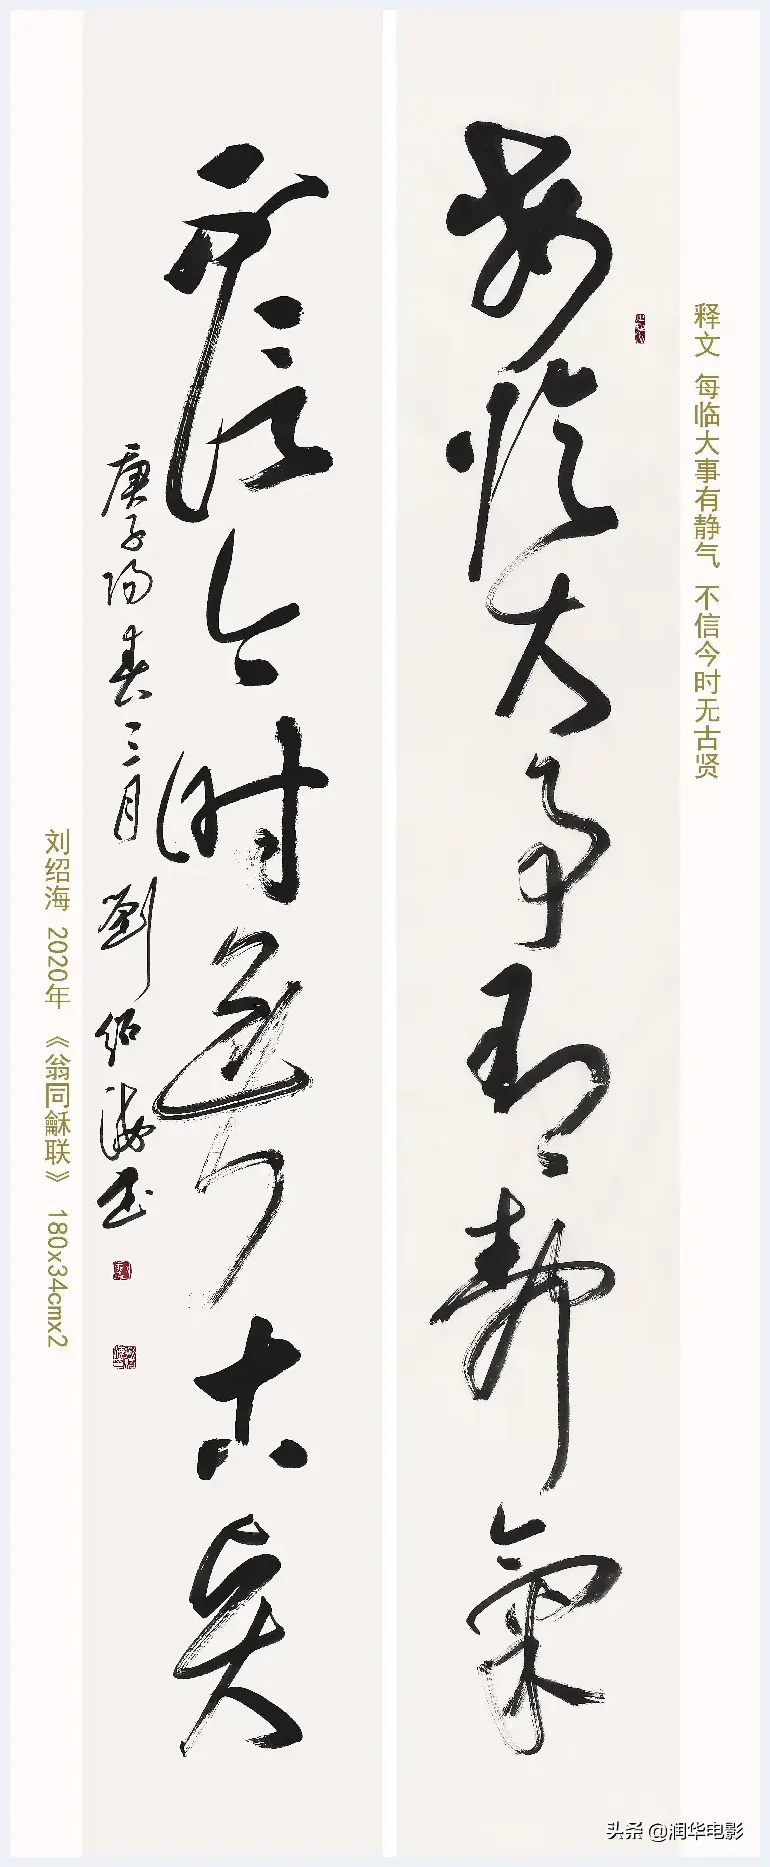 释文 每临大事有静气 不信今时无古贤
每临大事有静氣
不信今时无古贤
庚子阳春三月劉绍海书
刘绍海 2020年 《翁同龢联》 180x34cmx2
头条 @润华电影